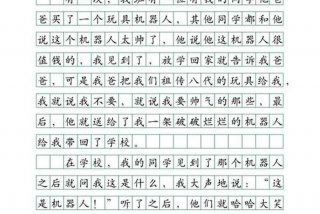 爸买了一个玩具机器人，其他同学都和他
说这个机器人太帅了，他说他这机器人很
值钱的，我见到了，放学回家就告诉我爸
爸，可是我爸把我们祖传八代的玩具给我，
我就说我不要，就说我要帅气的那些，最
后，他就送给了我一架破破烂烂的机器人
给我带回了学校。
在学校，我的同学见到了那个机器人
之后就问我这是什么，我大声地说：“这
是机器人！”听了之后，他们就哈哈大笑